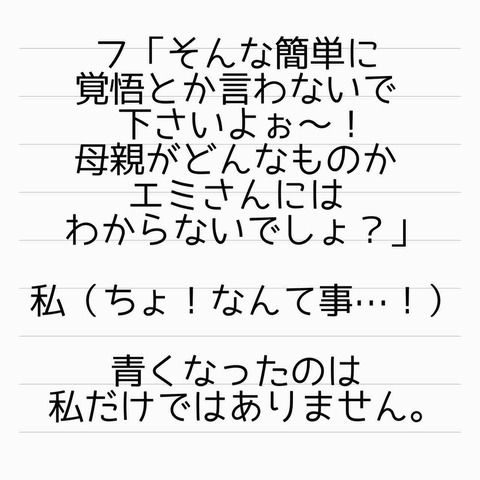 フ「そんな簡単に
覚悟とか言わないで
下さいよぉ〜！
母親がどんなものか
エミさんには
わからないでしょ？」
私（ちょ！なんて事…！）
青くなったのは
私だけではありません。